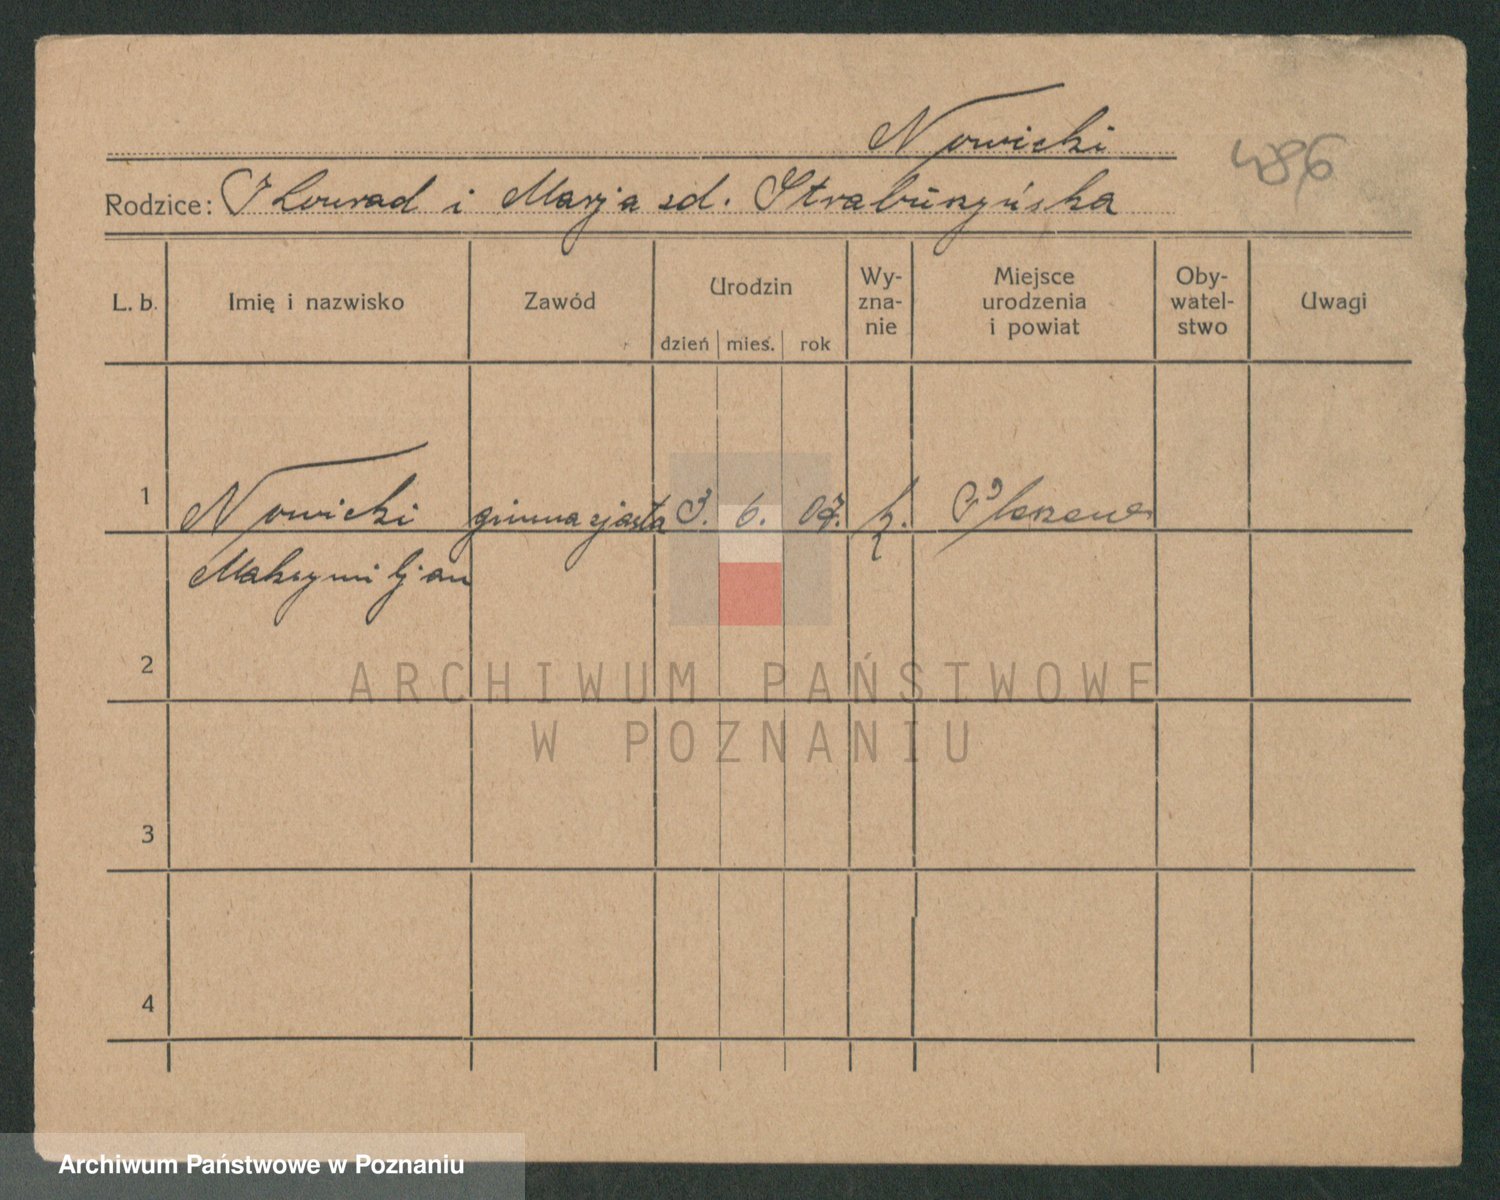 Nowicki
486
Rodzice: Konrad i Marja zd. Straburzyńska
L. b. Imię i nazwisko Zawód Urodzin dzień mies. rok Wy-zna-nie Miejsce urodzenia i powiat Oby-watel-stwo Uwagi
1 Nowicki gimnazjasta 3. 6. 07. k. Pleszew
Maksymiljan
2
ARCHIWUM PAŃSTWOWE
W POZNANIU
3
4
Archiwum Państwowe w Poznaniu